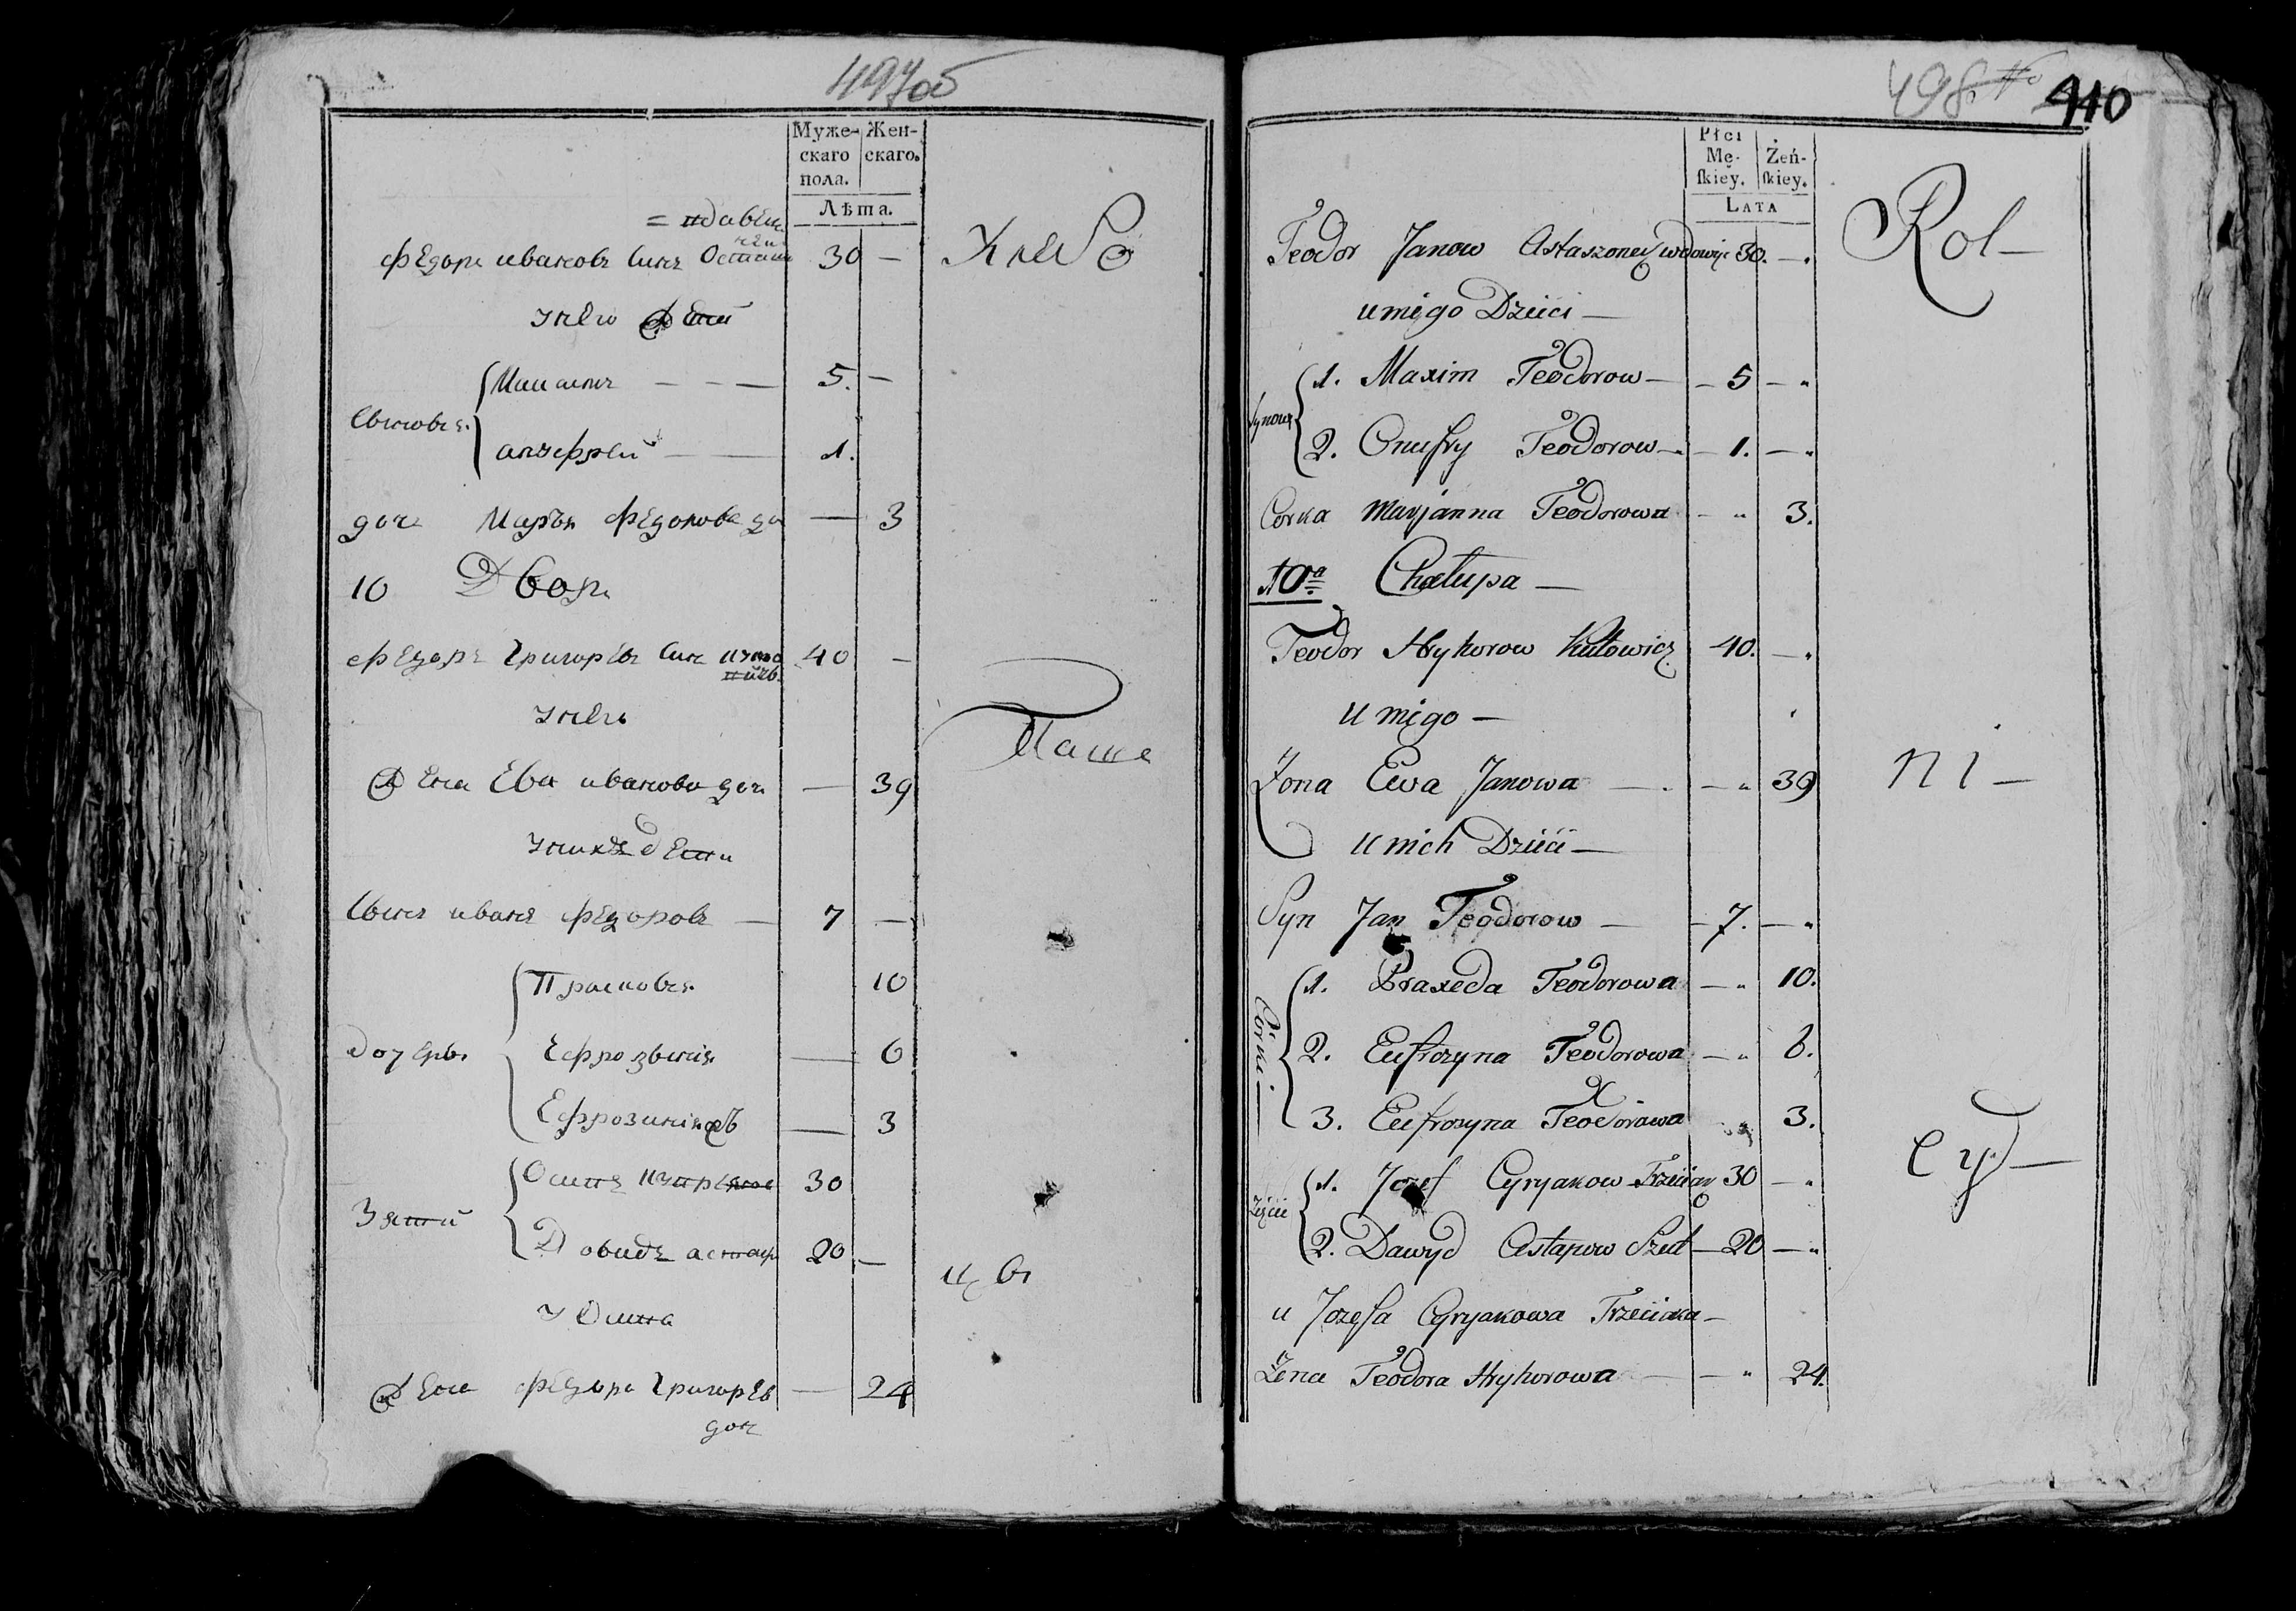 497об
Муже- Жен-
скаго скаго.
пола.
Лѣта.
Федоръ ивановъ Сынъ 30 —
у него Дети
5. —
Сыновья.
ануфрей — — 1.
дочь Марья Федорова до — 3
10 Дворъ
Федоръ Григорьевъ Сынъ 40 —
у него
Жена Ева иванова дочь — 39
у нихъ дети
Сынъ иванъ Федоровъ — 7 —
Прасковья 10
Дочери Ефрозыния — 6
Ефрозиния — 3
Осипъ 30
Зятьи
Довидъ астап 20 —
У Осипа
Жена Федора Григорьев — 24
дочь
Хлебо
Паше
цы
498
410
Płci
Mę- Żeń-
skiey. skiey.
LATA
Teodor Janow Astaszonek wdowiec 30. — "
u niego Dzieci —
Synowie
1. Maxim Teodorow — — 5 — "
2. Onufry Teodorow — — 1. — "
Corka Marjanna Teodorowa — " 3.
10a Chałupa —
Teodor Hryhorow Kutowicz 40. — "
u niego —
Żona Ewa Janowa — — " 39
u nich Dzieci —
Syn Jan Teodorow — — 7. — "
Córki
1. Praxeda Teodorowa — " 10.
2. Eufrozyna Teodorowa — " 6.
3. Eufrozyna Teodorowa " 3.
Zięcie
1. Jozef Cyryakow Trzeciak 30 — "
2. Dawyd Astapow — 20 — "
u Jozefa Cyryakowa Trzeciaka —
Żena Teodora Hryhorowa — — " 24.
Rol —
ni —
cy —